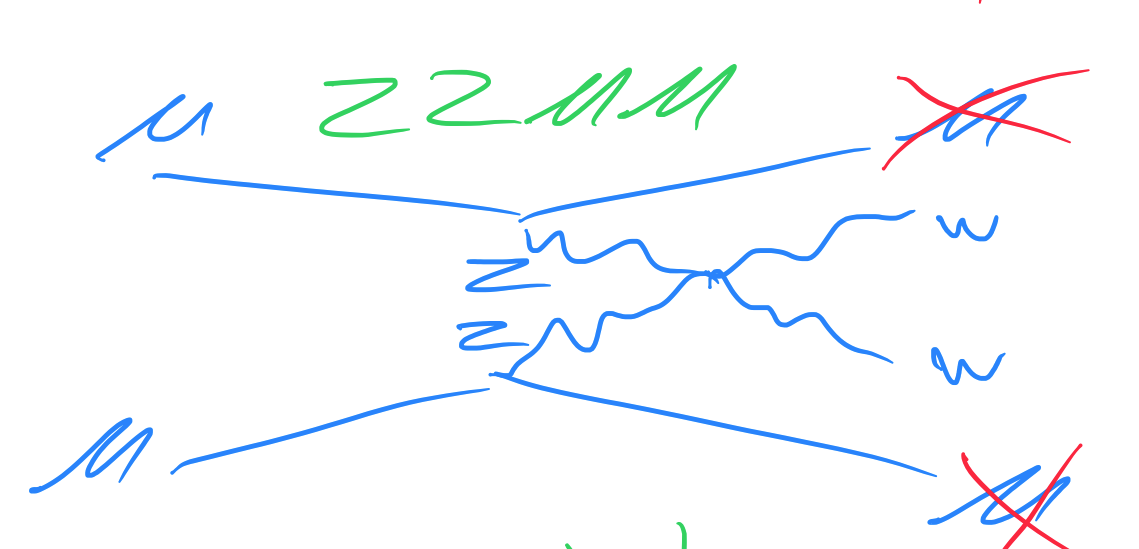 μ ZZμμ μ
w
Z
Z
w
μ
μ